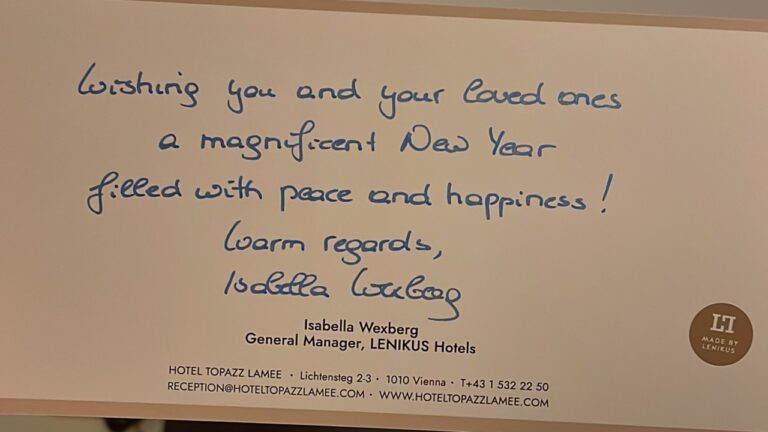 Wishing you and your loved ones
a magnificent New Year
filled with peace and happiness!
Warm regards,
Isabella Wexberg
Isabella Wexberg
General Manager, LENIKUS Hotels
HOTEL TOPAZZ LAMEE · Lichtensteg 2-3 · 1010 Vienna · T+43 1 532 22 50
RECEPTION@HOTELTOPAZZLAMEE.COM · WWW.HOTELTOPAZZLAMEE.COM
MADE BY
LENIKUS